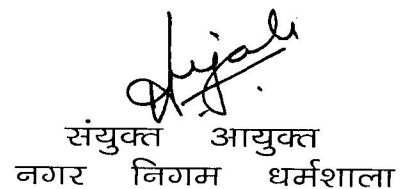 संयुक्त आयुक्त
नगर निगम धर्मशाला